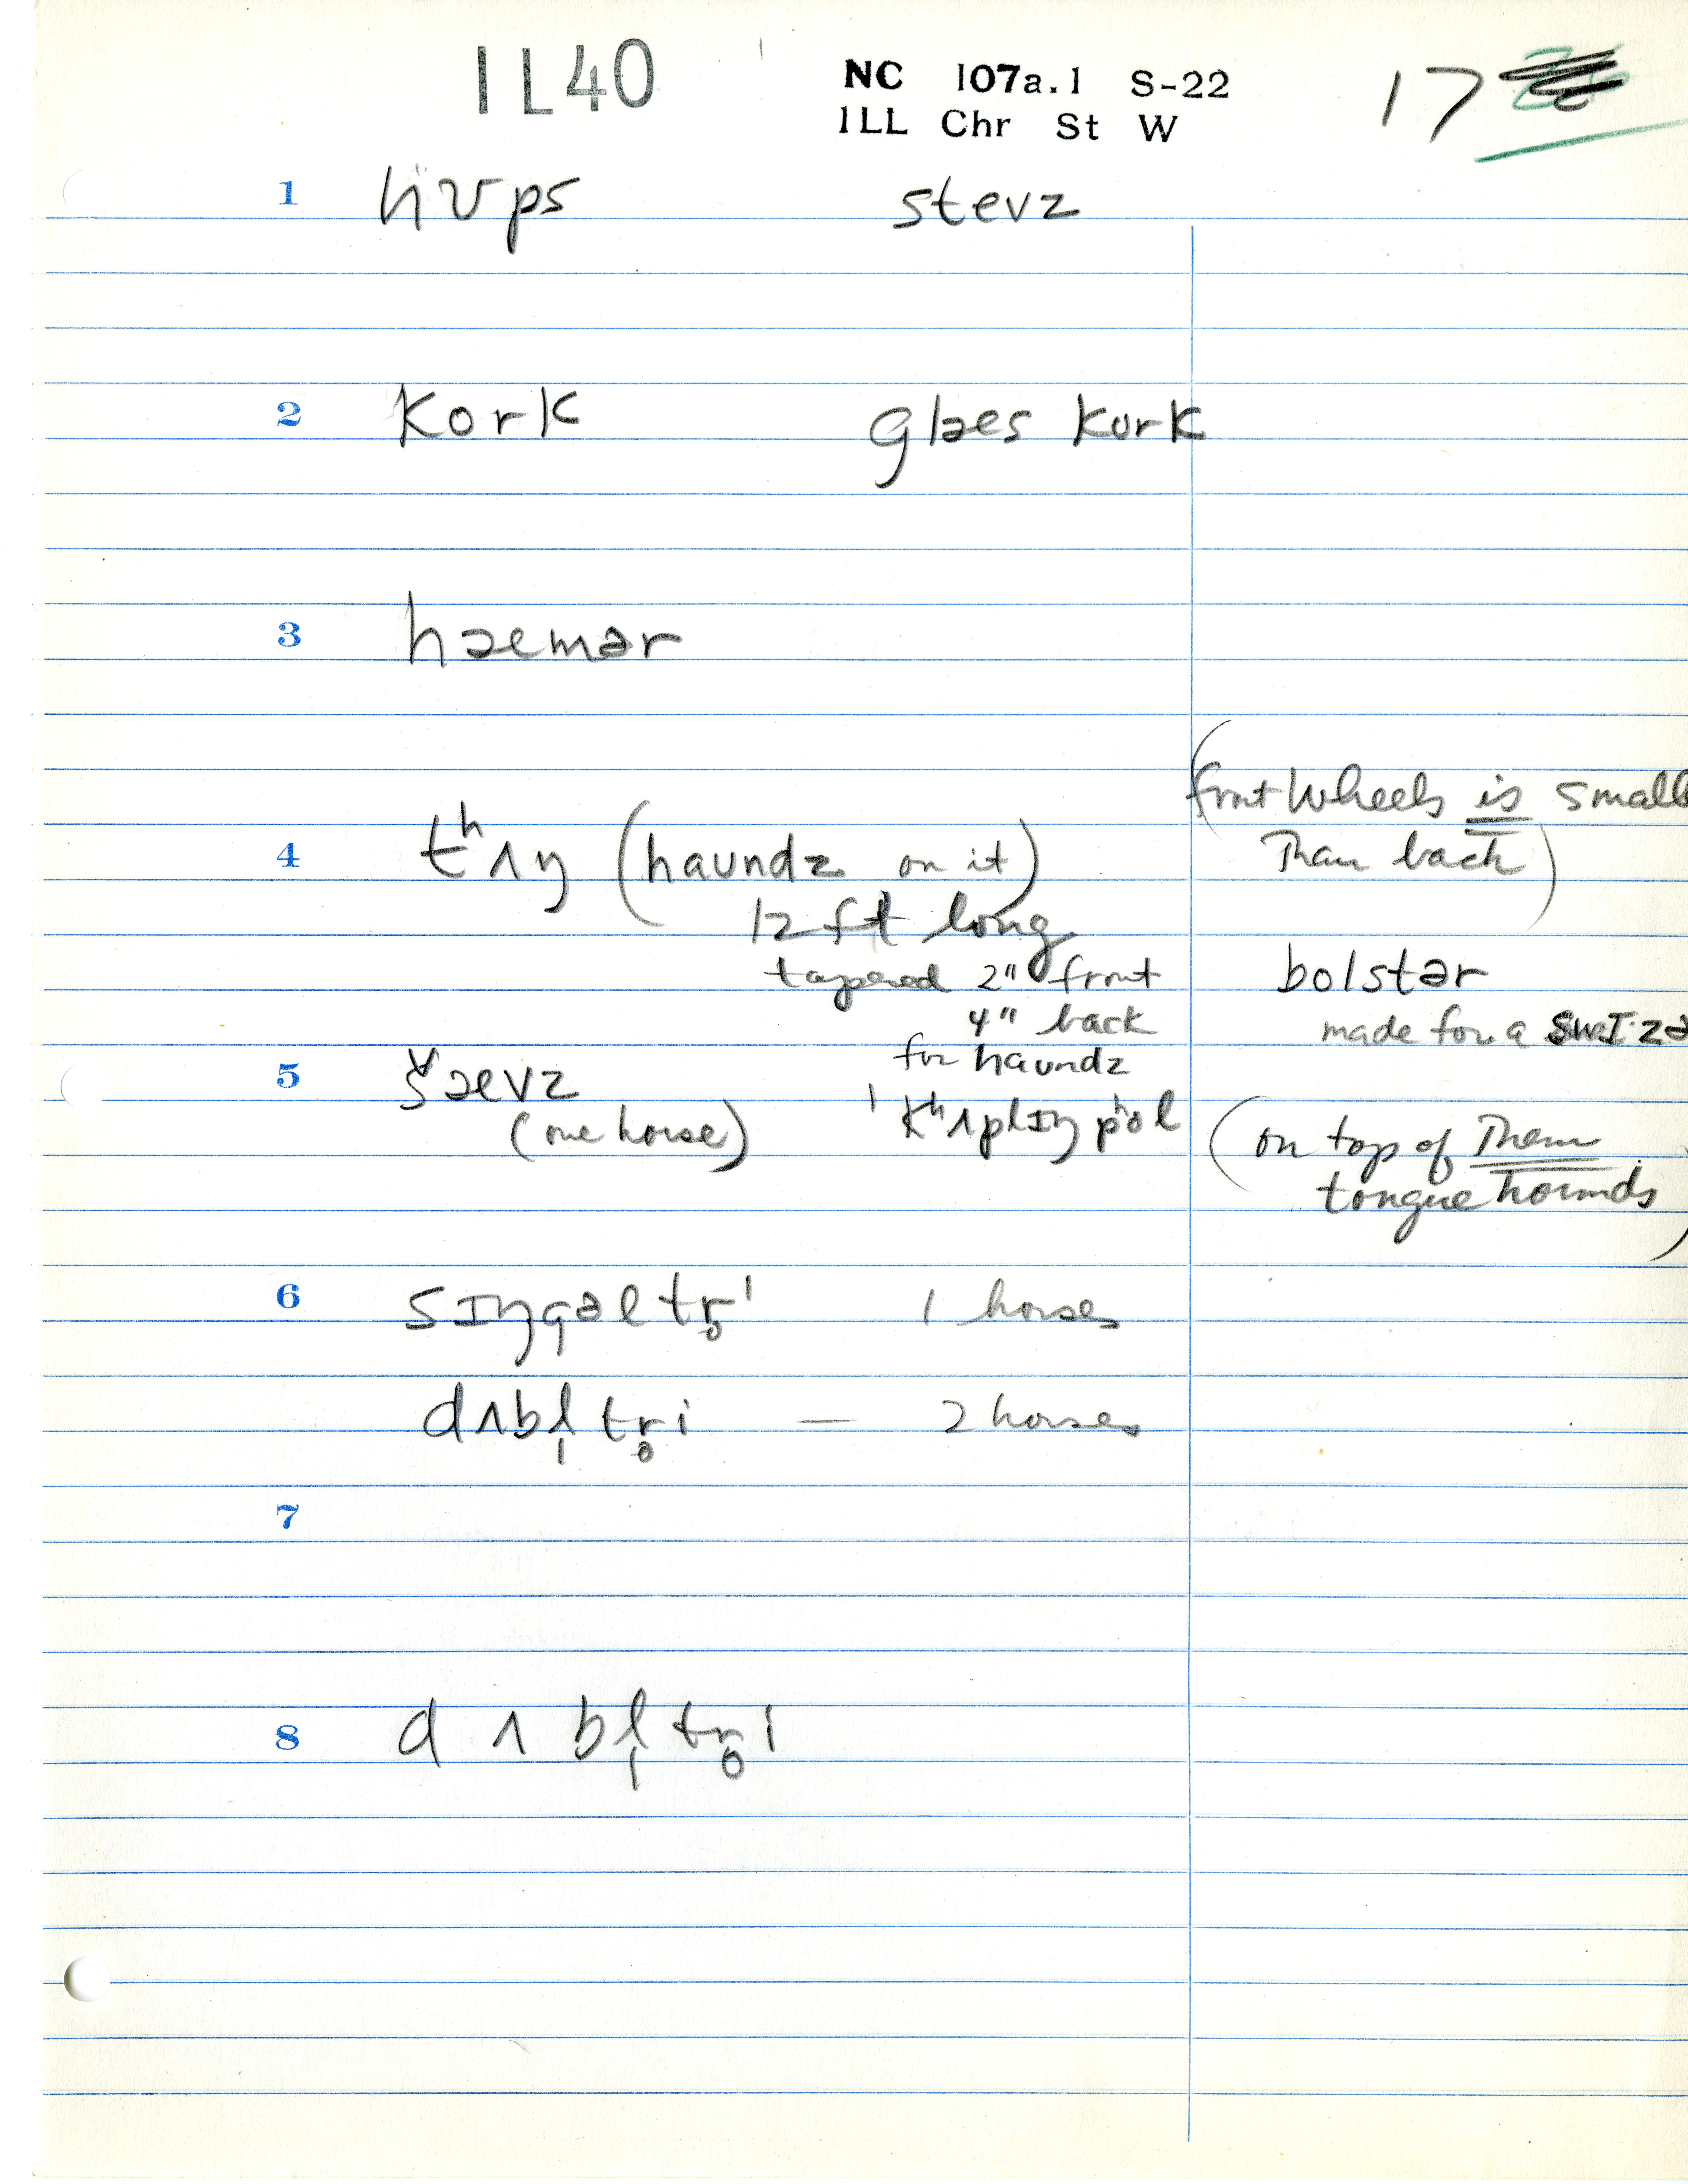 IL40
NC 107a.1 S-22
ILL Chr St W
17
1 hʊps stevz
2 kork glæs kork
3 hæmər
4 tʰʌŋ (haundz on it)
12 ft long
tapered 2" front
4" back
for haundz
(front wheels is small
Than back)
bolstər
made for a
5 š̌ævz
(one horse)
kʰʌplɪŋ pʰol
(on top of Them
tongue hounds)
6 sɪŋgəl tr̥i 1 horses
dʌbl̩ tr̥i — 2 horses
7
8 dʌbl̩ tr̥i